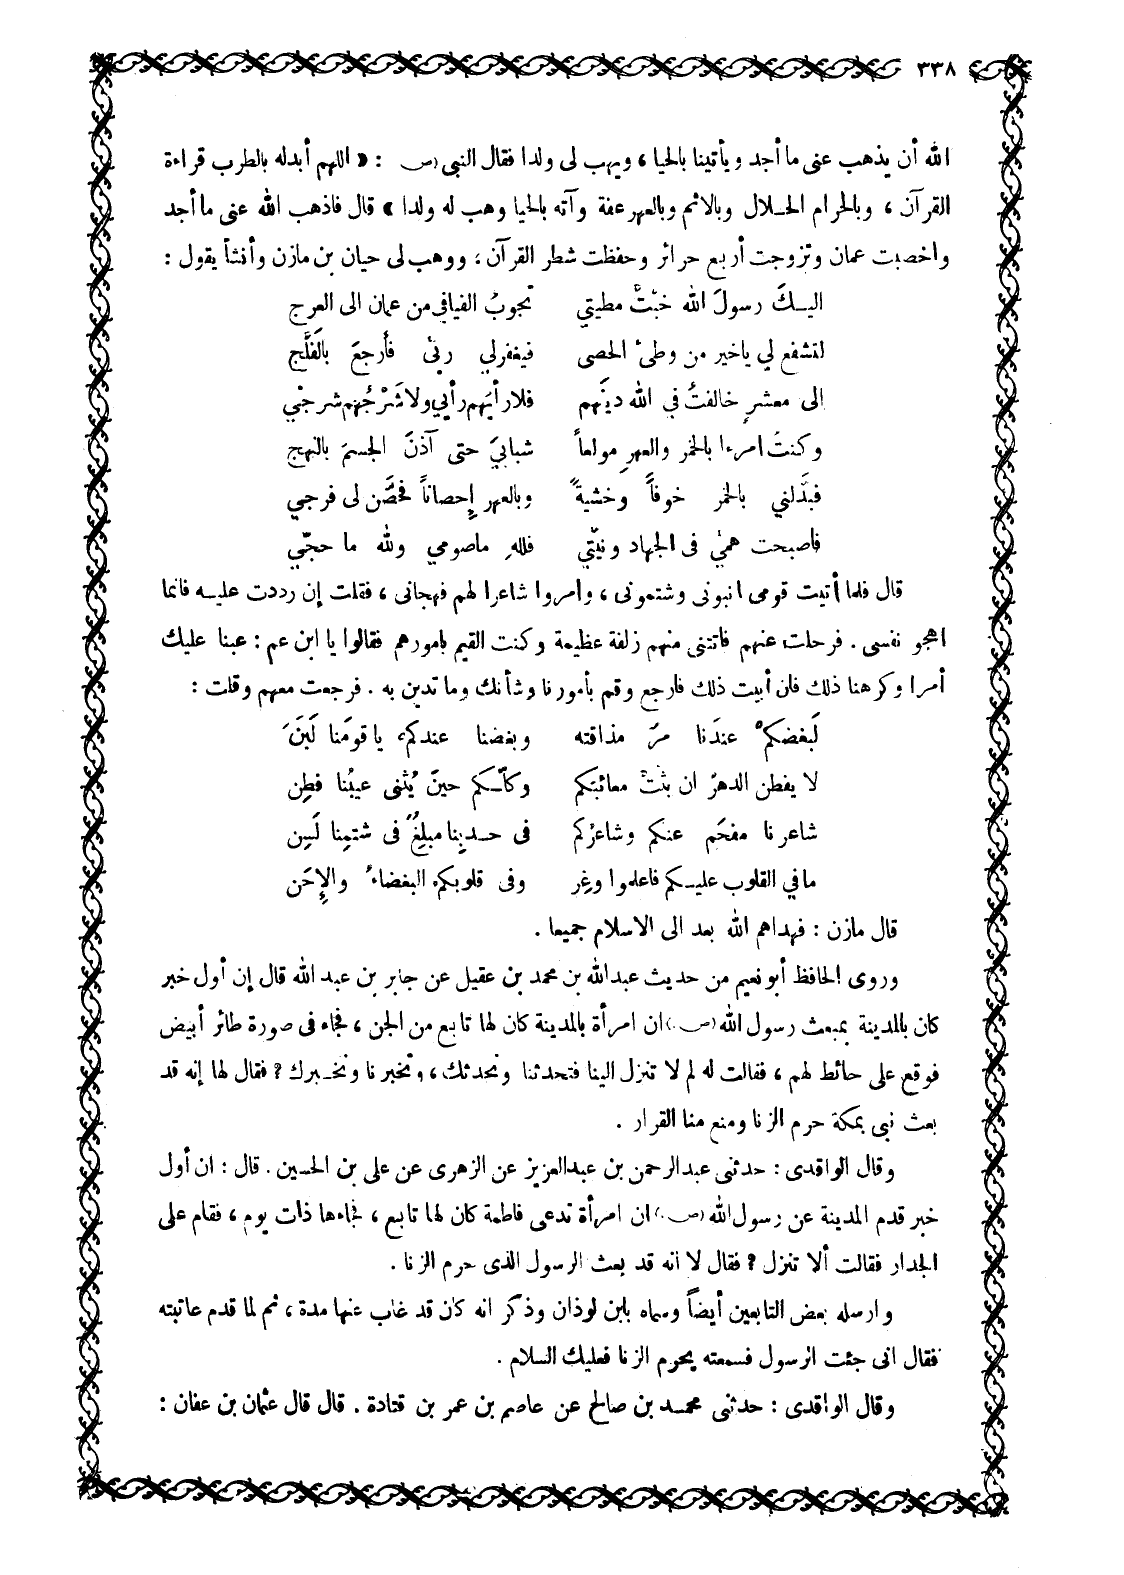 ٣٣٨
الله أن يذهب عنى ما أجد ويأتينا بالحيا ، ويهب لى ولدا فقال النبى (ص) : « اللهم أبدله بالطرب قراءة
القرآن ، وبالحرام الحلال وبالاثم وبالعهر عفة وآته بالحيا وهب له ولدا » قال فاذهب الله عنى ما أجد
واخصبت عمان وتزوجت أربع حرائر وحفظت شطر القرآن ، ووهب لى حيان بن مازن وأنشأ يقول :
اليك رسولَ الله خبّتْ مطيتي تجوبُ الفيافي من عمان الى العرج
لتشفع لي ياخير من وطئ الحصى فيغفرلي ربّى فأرجعَ بالفَلَّج
الى معشرٍ خالفتُ في الله دينَهم فلا رأيَهم رأيي ولا شَرْجُهم شرجْي
وكنتُ امرءا بالخمر والعهرِ مولعاً شبابيَ حتى آذنَ الجسمَ بالنهج
فبدَّلني بالخمر خوفاً وخشيةً وبالعهر إحصاناً فحصَّن لى فرجي
فاصبحت همّي فى الجهاد ونيّتي فللهِ ماصومي ولله ما حجّي
قال فلما أتيت قومى انبونى وشتمونى ، وامروا شاعرا لهم فهجانى ، فقلت إن رددت عليه فانما
اهجو نفسى . فرحلت عنهم فاتتنى منهم زلفة عظيمة وكنت القيم بامورهم فقالوا يا ابن عم : عبنا عليك
أمرا وكرهنا ذلك فان أبيت ذلك فارجع وقم بأمورنا وشأنك وما تدين به . فرجعت معهم وقلت :
لَبغضكمْ عندَنا مرّ مذاقته وبغضنا عندكم ياقومَنا لَبَنَ
لا يفطن الدهرُ ان بثّتْ معائبكم وكلّكم حينَ يُثْنى عيبُنا فطِن
شاعرنا مفحَم عنكم وشاعرُكم فى حدبِنا مبلِغٌ فى شتمِنا لَسِن
مافي القلوب عليكم فاعلموا وغِر وفى قلوبكم البغضاءُ والإِحَن
قال مازن : فهداهم الله بعد الى الاسلام جميعا .
وروى الحافظ أبو نعيم من حديث عبدالله بن محمد بن عقيل عن جابر بن عبد الله قال إن أول خبر
كان بالمدينة بمبعث رسول الله (ص) ان امرأة بالمدينة كان لها تابع من الجن ، فجاء فى صورة طائر أبيض
فوقع على حائط لهم ، فقالت له لم لا تنزل الينا فتحدثنا ونحدثك ، وتخبرنا ونخبرك ؟ فقال لها إنه قد
بعث نبى بمكة حرم الزنا ومنع منا القرار .
وقال الواقدى : حدثنى عبدالرحمن بن عبدالعزيز عن الزهرى عن على بن الحسين . قال : ان أول
خبر قدم المدينة عن رسول الله (ص) ان امرأة تدعى فاطمة كان لها تابع ، فجاءها ذات يوم ، فقام على
الجدار فقالت ألا تنزل ؟ فقال لا انه قد بعث الرسول الذى حرم الزنا .
وارسله بعض التابعين أيضاً وسماه بابن لوذان وذكر انه كان قد غاب عنها مدة ، ثم لما قدم عاتبته
فقال انى جئت الرسول فسمعته يحرم الزنا فعليك السلام .
وقال الواقدى : حدثنى محمد بن صالح عن عاصم بن عمر بن قتادة . قال قال عثمان بن عفان :